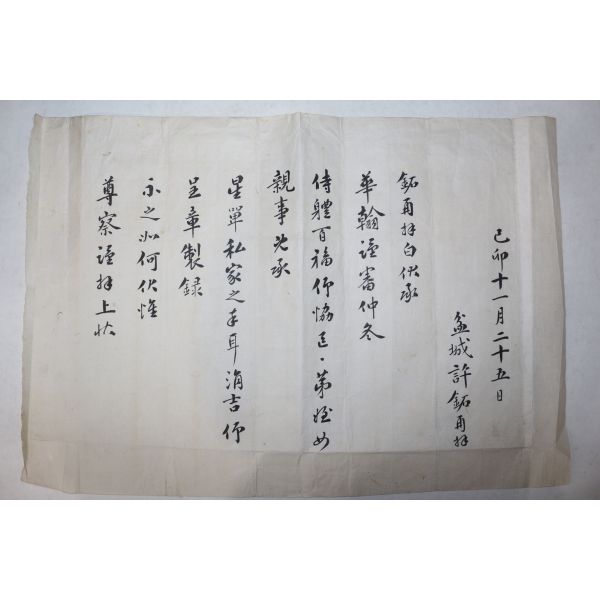 己卯十一月二十五日
盆城許鉐再拜
鉐再拜白伏承
華翰謹審仲冬
侍體百福仰 弟姪女
親事旣承
星單私家之幸耳涓吉仰
呈章製録
示之如何伏惟
尊察謹拜上狀